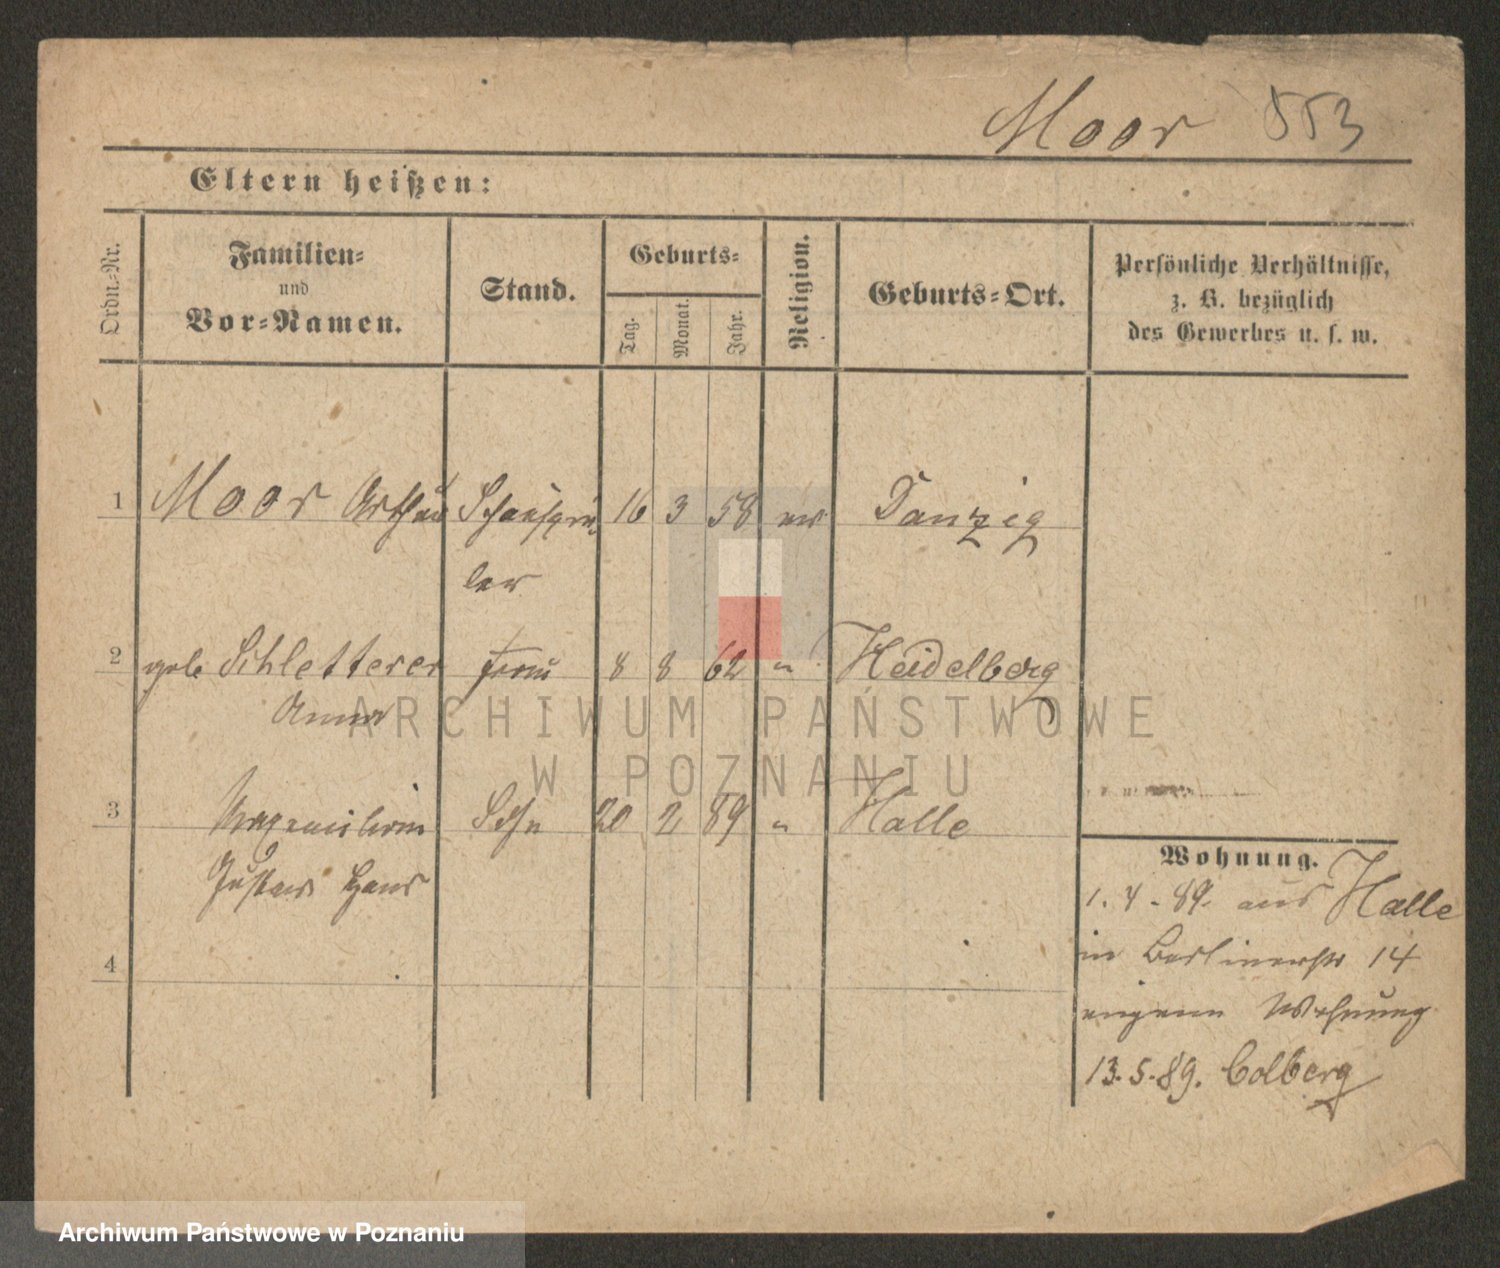 Moor 553
Eltern heißen:
Ordn.-Nr.
Familien-
und
Vor-Namen.
Stand.
Geburts-
Tag.
Monat.
Jahr.
Religion.
Geburts-Ort.
Persönliche Verhältnisse,
z. B. bezüglich
des Gewerbes u. s. w.
1 Moor Arthur Schauspie 16 3 58 ev Danzig
ler
2 geb Schletterer Frau 8 8 62 " Heidelberg
Anna
3 Maximilian Sohn 20 2 89 " Halle
Gustav Hans
4
Wohnung.
1. 4. 89. aus Halle
in Berlinerstr 14
eigene Wohnung
13. 5. 89. Colberg
ARCHIWUM PAŃSTWOWE
W POZNANIU
Archiwum Państwowe w Poznaniu